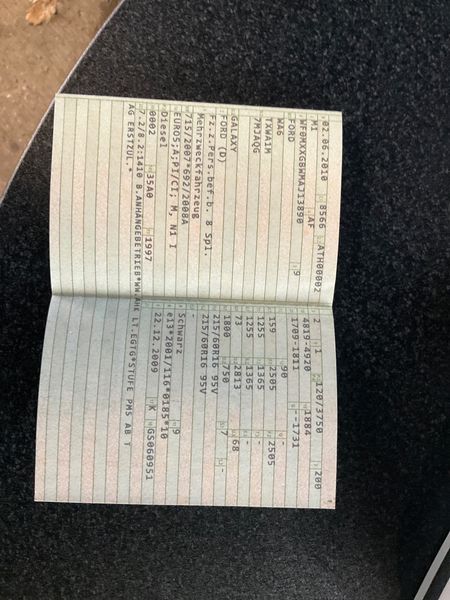 02.06.2010 8566 ATH00002
M1 AF
WF0MXXGBWMAJ13890 9
FORD
WA6
TXWA1M
7MJAQG
GALAXY
FORD (D)
Fz.z.Pers.bef.b. 8 Spl.
Mehrzweckfahrzeug
715/2007*692/2008A
EURO5;A;PI/CI; M, N1 I
Diesel
0002 35A0 1997
7.2/8.2:1410 B.ANHÄNGEBETRIEB*WW.AHK LT.EGTG*STUFE PM5 AB T
AG ERSTZUL.*
2 1 120/3750 200
4819-4920 1884
1709-1811 --1731
90 -
159 2505 2505
1255 1365 -
1255 1365 -
73 2813 68
1800 750 7 -
215/60R16 95V
215/60R16 95V
-
Schwarz 9
e13*2001/116*0185*10
22.12.2009 K GS060951